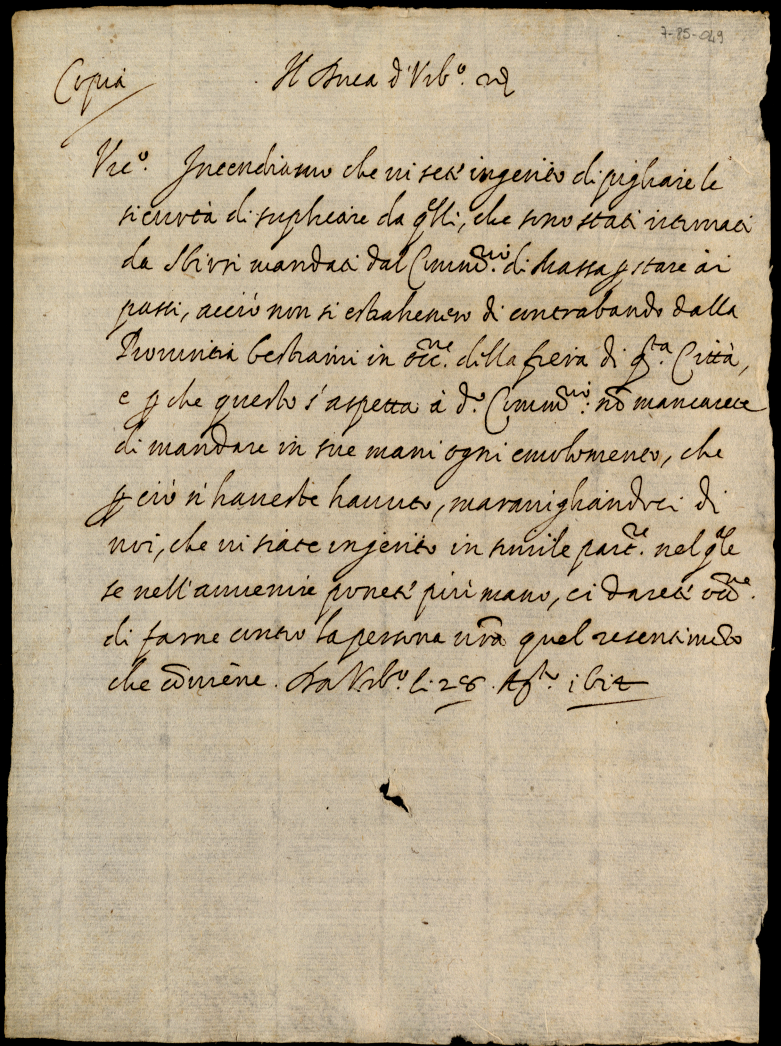 7-85-049
Copia
Il Duca d'Vrb.º
Vic.º Intendiamo che vi sete ingerito di pigliare le
sicurtà di suplicare da qlli, che sono stati intimati
da sbirri mandati dal Comm.rio di Massa p stare ài
passi, acciò non si estrahessero di contrabando dalla
Provincia bestiami in occ.ne della fiera di q.sta Città,
e p che questo s'aspetta à d.º Comm.rio nõ mancarete
di mandare in sue mani ogni emolomento, che
p ciò n'haueste hauuto, marauigliandoci di
uoi, che ui siate ingerito in simile part.re nel qle
se nell'auuenire ponete più mano, ci darete occ.ne
di farne contro la persona vrã quel resentimẽto
che cõuiene. Da Vrb.º li 28 Ag.to 1612